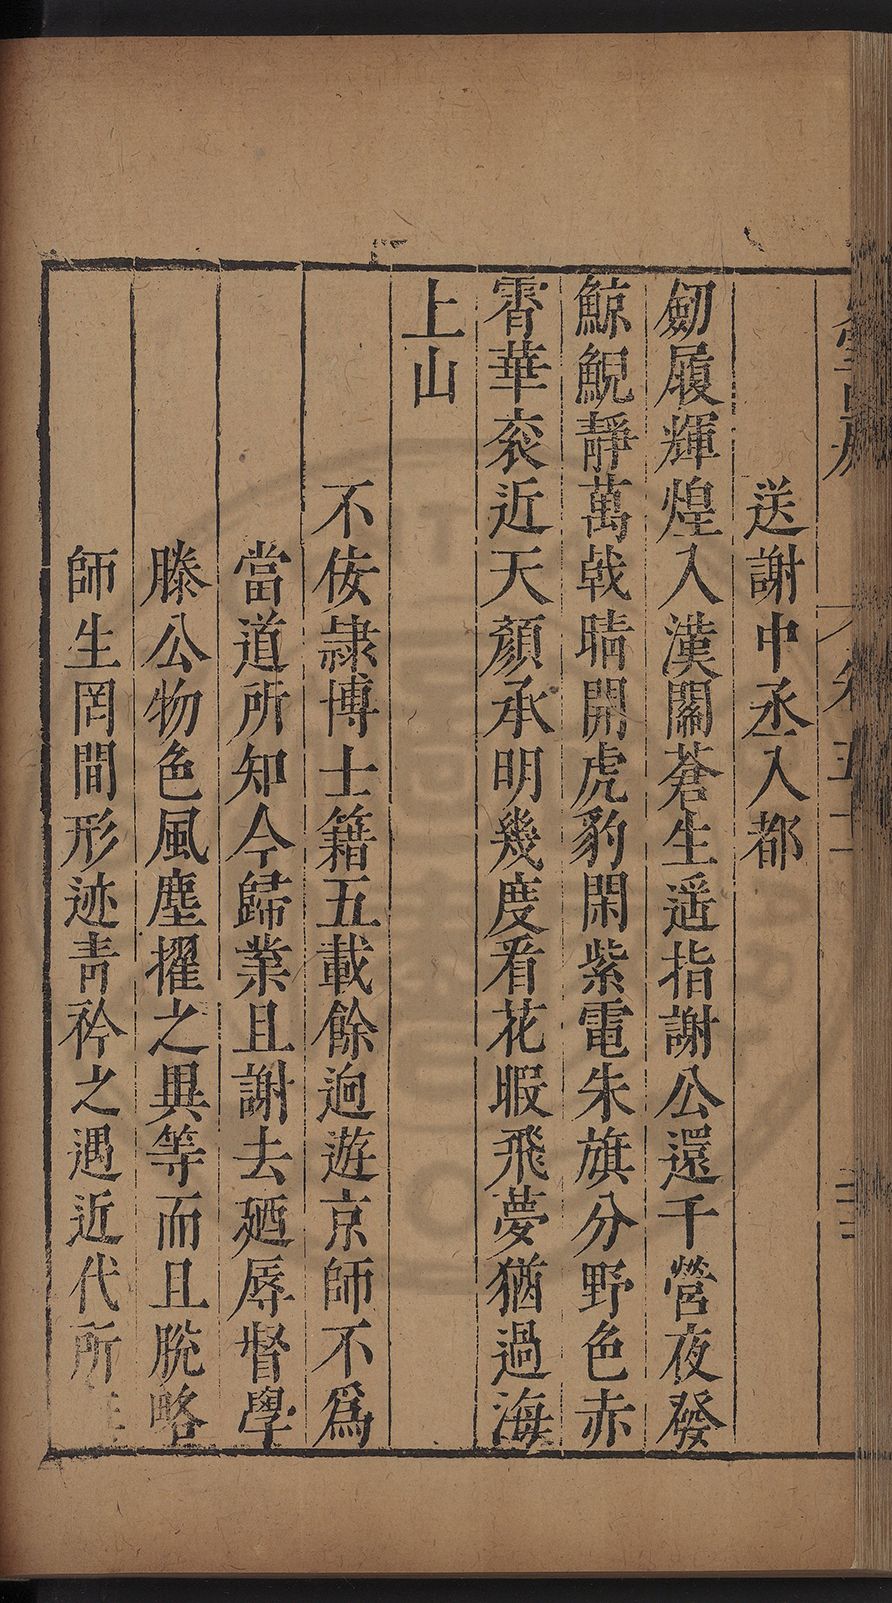 卷五十
送謝中丞入都
劒履輝煌入漢關蒼生遥指謝公還千營夜發
鯨鯢靜萬戟晴開虎豹閑紫電朱旗分野色赤
霄華衮近天顏承明幾度看花暇飛夢猶過海
上山
不佞隷博士籍五載餘逈遊京師不爲
當道所知今歸業且謝去廼辱督學
滕公物色風塵擢之異等而且脫略
師生罔間形迹青衿之遇近代所